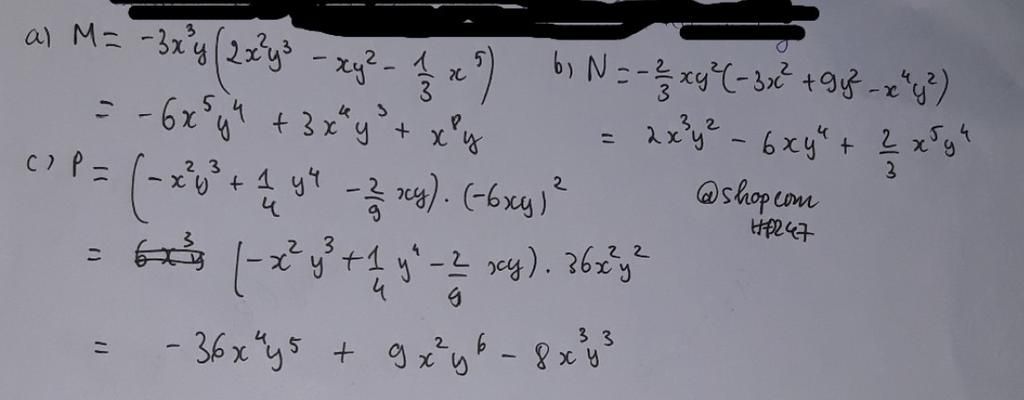 a) M = -3x³y(2x²y³ - xy² - 1/3 x⁵)
= -6x⁵y⁴ + 3x⁴y³ + x⁸y
b) N = -2/3 xy²(-3x² + 9y² - x⁴y²)
= 2x³y² - 6xy⁴ + 2/3 x⁵y⁴
c) P = (-x²y³ + 1/4 y⁴ - 2/9 xy) . (-6xy)²
= (-x²y³ + 1/4 y⁴ - 2/9 xy) . 36x²y²
= -36x⁴y⁵ + 9x²y⁶ - 8x³y³
@shopcom